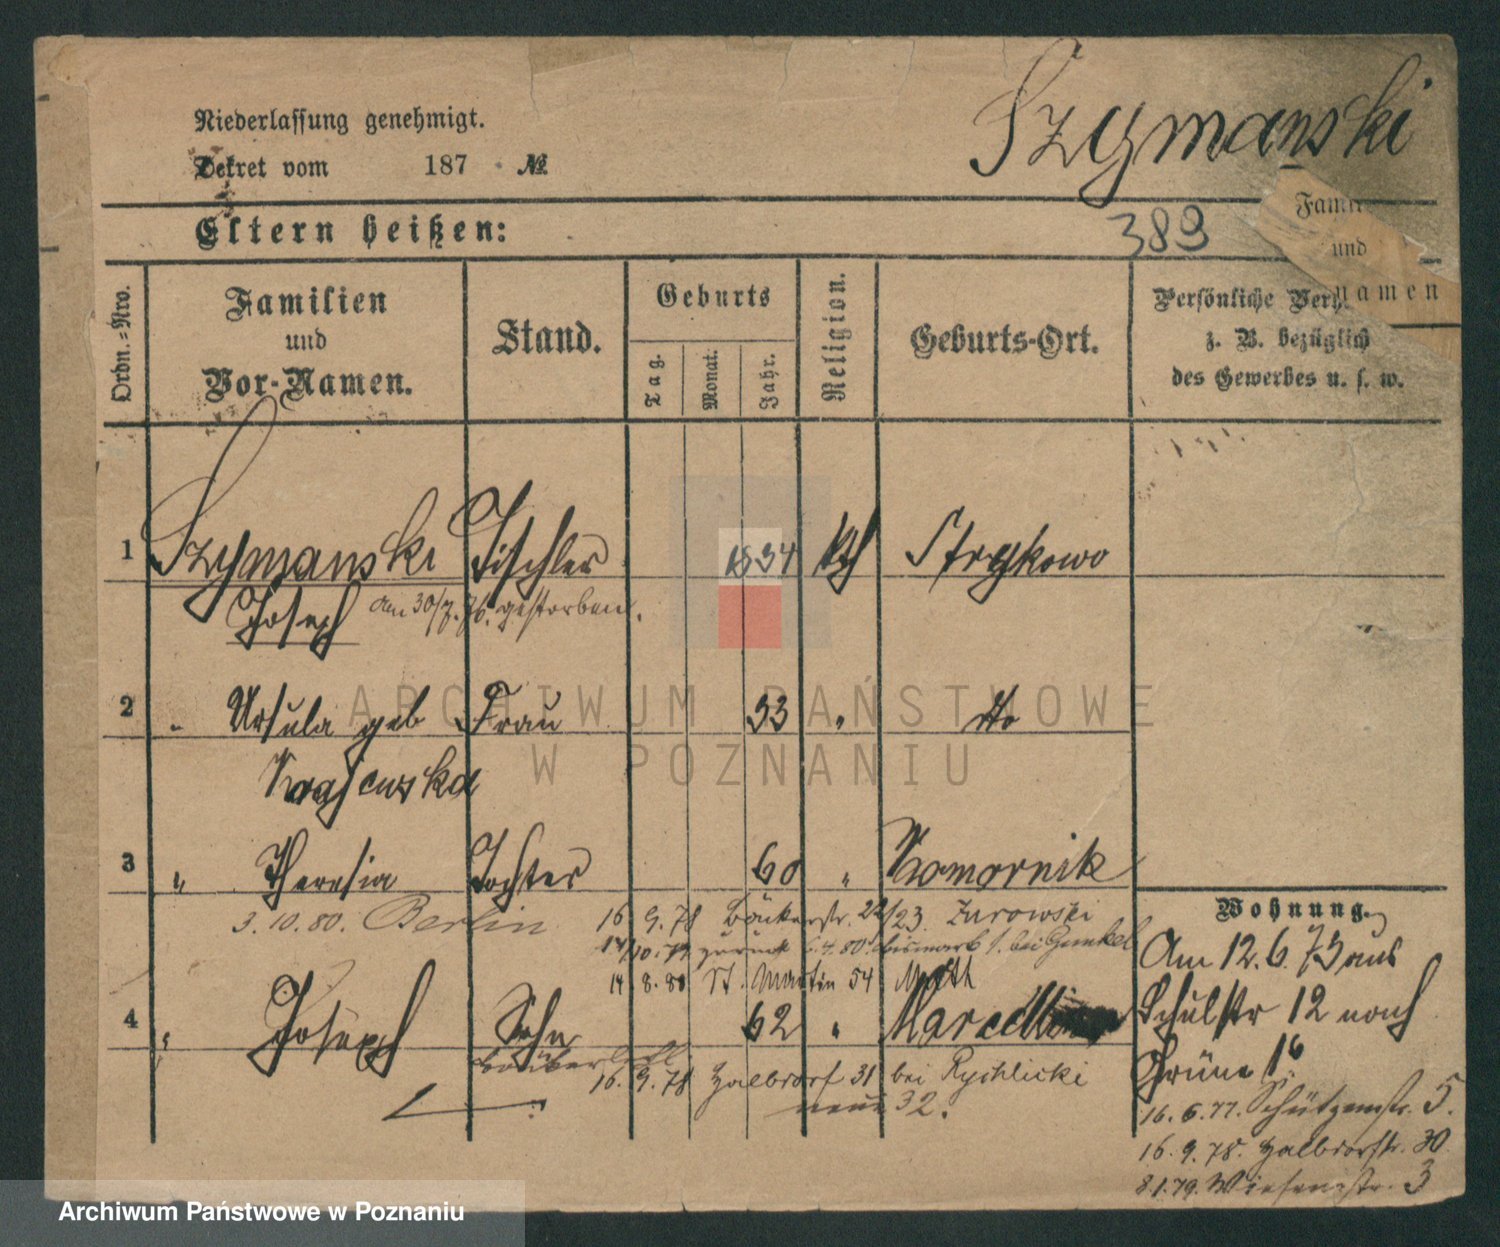 Szymanski
Niederlassung genehmigt.
Dekret vom 187 №
Eltern heißen:
389
Famil
und
namen
Ordn.-Nro.
Familien
und
Vor-Namen.
Stand.
Geburts
Tag.
Monat.
Jahr.
Religion.
Geburts-Ort.
Persönliche Verh
z. B. bezüglich
des Gewerbes u. s. w.
1 Szymanski Tischler 1834 kth Strykowo
Joseph am 30/7.76. gestorben.
2 " Ursula geb Frau 33 " dto
Krajewska
3 " Theresia Tochter 60 " Komornik
3.10.80. Berlin 16 9.78 Bäckerstr. 22/23. Zurowski
14/10.79 zurück 6.4.80. Bismarkst. bei Gunkel
14 8.80 St. Martin 54
4 " Joseph Sohn 62 "
16.9.78 Halbdorf 31 bei Rychlicki
neue 32.
Wohnung.
Am 12.6.75 aus
Schulstr 12 nach
Grüne 1b
16.6.77. Schützenstr. 5.
16.9.78. Halbdorfstr. 30
8.1.79. Wiesenstr. 3
ARCHIWUM PAŃSTWOWE
W POZNANIU
Archiwum Państwowe w Poznaniu